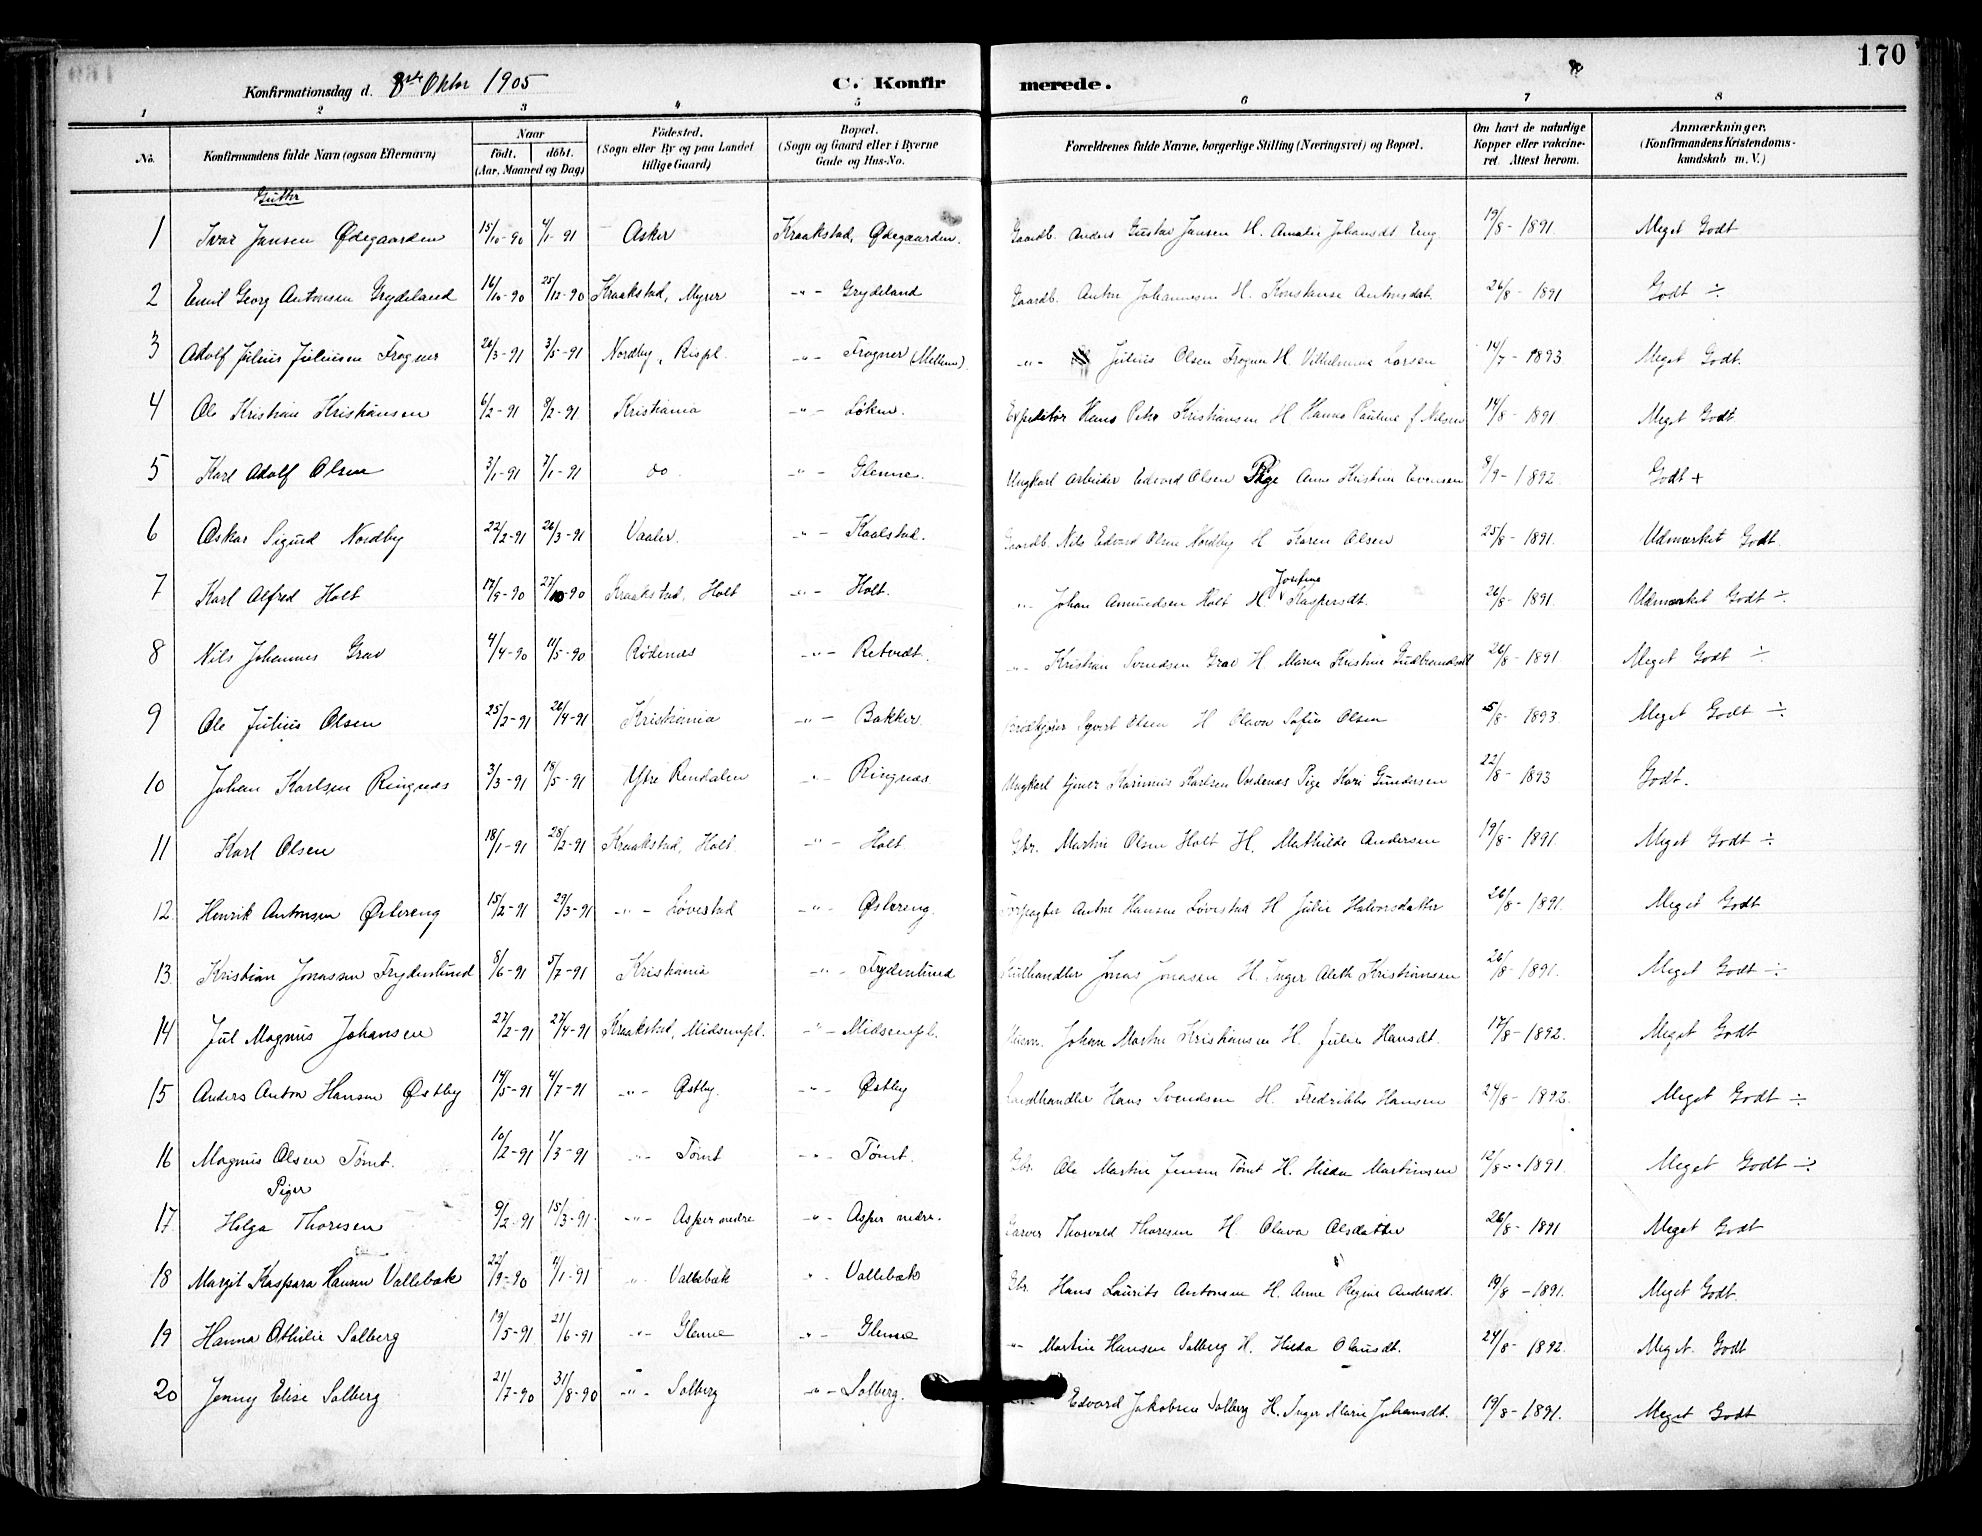 170
Konfirmationsdag d. 8de Oktbr 1905 C. Konfirmerede.
1 2 3 4 5 6 7 8
No. Konfirmandens fulde Navn (ogsaa Efternavn) Naar født. døbt. (Aar, Maaned og Dag) Fødested. (Sogn eller By og paa Landet tillige Gaard) Bopæl. (Sogn og Gaard eller i Byerne Gade og Hus-No. Forældrenes fulde Navne, borgerlige Stilling (Næringsvei) og Bopæl. Om havt de naturlige Kopper eller vakcineret. Attest herom. Anmærkninger. (Konfirmandens Kristendomskundskab m. V.)
Gutter
1 Ivar Jansen Ødegaarden 15/10-90 4/1-91 Asker Kraakstad, Ødegaarden. Gaardb. Anders Gustav Jansen H. Amalie Johansdt Eng 19/8-1891. Meget Godt
2 Emil Georg Antonsen Grydeland 16/10-90 25/12-90 Kraakstad, Myrer -"- Grydeland Gaardb. Anton Johannesen H. Konstanse Antonsdat. 26/8-1891 Godt ÷
3 Adolf Julius Juliusen Frogner 26/3-91 3/5-91 Nordby, Rispl. -"- Frogner (Mellem). -"- Julius Olsen Frogner H. Vilhelmine Larsen 14/7-1893 Meget Godt.
4 Ole Kristian Kristiansen 6/2-91 8/2-91 Kristiania -"- Løken. Expeditør Hans Peter Kristiansen H Hanna Pauline f. Nilsen 14/8-1891 Meget Godt
5 Karl Adolf Olsen 3/1-91 7/1-91 do. -"- Glenne. Ungkarl Arbeider Edvard Olsen Pige Anne Kristine Evensen 8/9-1892 Godt +
6 Oskar Sigurd Nordby 22/2-91 26/3-91 Vaaler. -"- Kaalstad. Gaardb. Nils Edvard Olsen Nordby H Karen Olsen 25/8-1891. Udmærket Godt.
7 Karl Alfred Holt 17/9-90 27/10-90 Kraakstad, Holt -"- Holt. -"- Johan Amundsen Holt H. Josefine Kaspersdt. 26/8-1891. Udmærket Godt ÷
8 Nils Johannes Grav 4/4-90 11/5-90 Rødenæs -"- Retvedt. -"- Kristian Svendsen Grav H. Maren Kristine Gudbrandsdt 26/8-1891 Meget Godt ÷
9 Ole Julius Olsen 25/2-91 26/4-91 Kristiania -"- Bakker Syvert Olsen H Olava Sofie Olsen 5/8-1893. Meget Godt ÷
10 Johan Karlsen Ringnæs 3/3-91 18/5-91 Ytre Rendalen -"- Ringnæs Ungkarl tjener Karinius Karlsen Pige Kari Gundersen 22/8-1893 Godt.
11 Karl Olsen 18/1-91 28/2-91 Kraakstad, Holt -"- Holt Gbr. Martin Olsen Holt H. Mathilde Andersen 19/8-1891. Meget Godt ÷
12. Henrik Antonsen Østereng 15/2-91 29/3-91 -"- Løvestad -"- Østereng. Forpagter Anton Hansen Løvestad H Julie Halvorsdatter 26/8-1891. Meget Godt
13. Kristian Jonassen Frydenlund 8/6-91 5/7-91 Kristiania -"- Frydenlund Kulhandler Jonas Jonasen H. Inger Aleth Kristiansen 26/8-1891. Meget Godt ÷
14 Jul Magnus Johansen 27/2-91 27/4-91 Kraakstad, Midsempl. -"- Midsempl. Husm. Johan Martin Kristiansen H. Julie Hansdt. 17/8-1892. Meget Godt
15 Anders Anton Hansen Østby 14/5-91 4/7-91 -"- Østby. -"- Østby Landhandler Hans Svendsen H. Fredrikke Hansen 24/8-1892. Meget Godt ÷
16 Magnus Olsen Tømt. 10/2-91 1/3-91 -"- Tømt -"- Tømt. Gbr. Ole Martin Jensen Tømt H. Hilda Martinsen 12/8-1891. Meget Godt ÷
Piger
17. Helga Thoresen 9/2-91 15/3-91. -"- Asper nedre -"- Asper nedre. Garver Thorvald Thoresen H. Olava Olsdatter 26/8-1891 Meget Godt
18 Margit Kaspara Hansen Vallebæk 22/9-90 11/1-91 -"- Vallebæk -"- Vallebæk Gbr. Hans Laurits Antonsen H. Anne Regine Andersdt. 19/8-1891. Meget Godt.
19 Hanna Othilie Solberg 19/5-91 21/6-91 -"- Glenne -"- Glenne -"- Martin Hansen Solberg H. Hilda Olausdt. 24/8-1892. Meget Godt
20 Jenny Elise Solberg 21/7-90 31/8-90 -"- Solberg -"- Solberg. Edvard Jakobsen Solberg H. Inger Marie Johansdt. 19/8-1891. Meget Godt